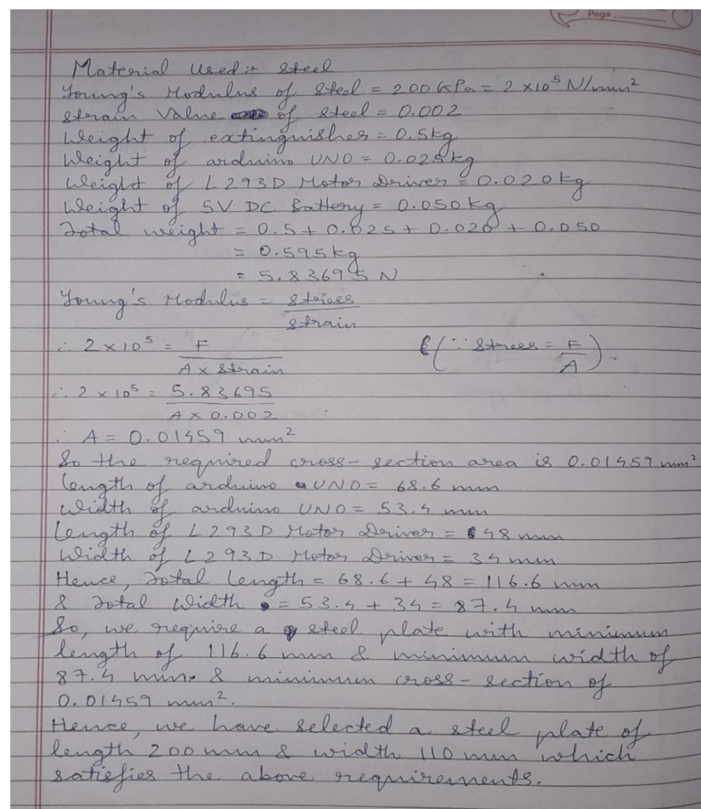 Page
Material Used:- Steel
Young's Modulus of Steel = 200 GPa = 2 x 10⁵ N/mm²
Strain Value of Steel = 0.002
Weight of extinguisher = 0.5kg
Weight of arduino UNO = 0.025kg
Weight of L293D Motor Driver = 0.020kg
Weight of 5V DC Battery = 0.050kg
Total weight = 0.5 + 0.025 + 0.020 + 0.050
= 0.595kg
= 5.83695 N
Young's Modulus = Stress / Strain
∴ 2 x 10⁵ = F / A x Strain (∵ Stress = F / A)
∴ 2 x 10⁵ = 5.83695 / A x 0.002
∴ A = 0.01459 mm²
So the required cross-section area is 0.01459 mm²
Length of arduino UNO = 68.6 mm
Width of arduino UNO = 53.4 mm
Length of L293D Motor Driver = 48 mm
Width of L293D Motor Driver = 34 mm
Hence, Total Length = 68.6 + 48 = 116.6 mm
& Total Width = 53.4 + 34 = 87.4 mm
So, we require a steel plate with minimum
length of 116.6 mm & minimum width of
87.4 mm & minimum cross-section of
0.01459 mm².
Hence, we have selected a steel plate of
length 200 mm & width 110 mm which
satisfies the above requirements.